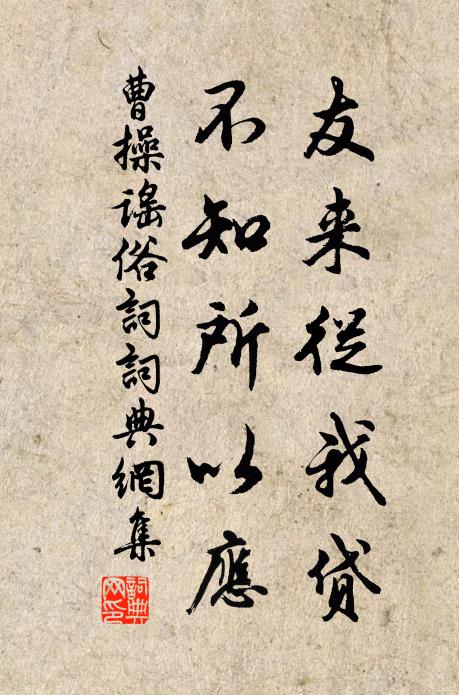 友来從我貸
不知所以應
曹操謠俗詞詞典網集
詞典
网印